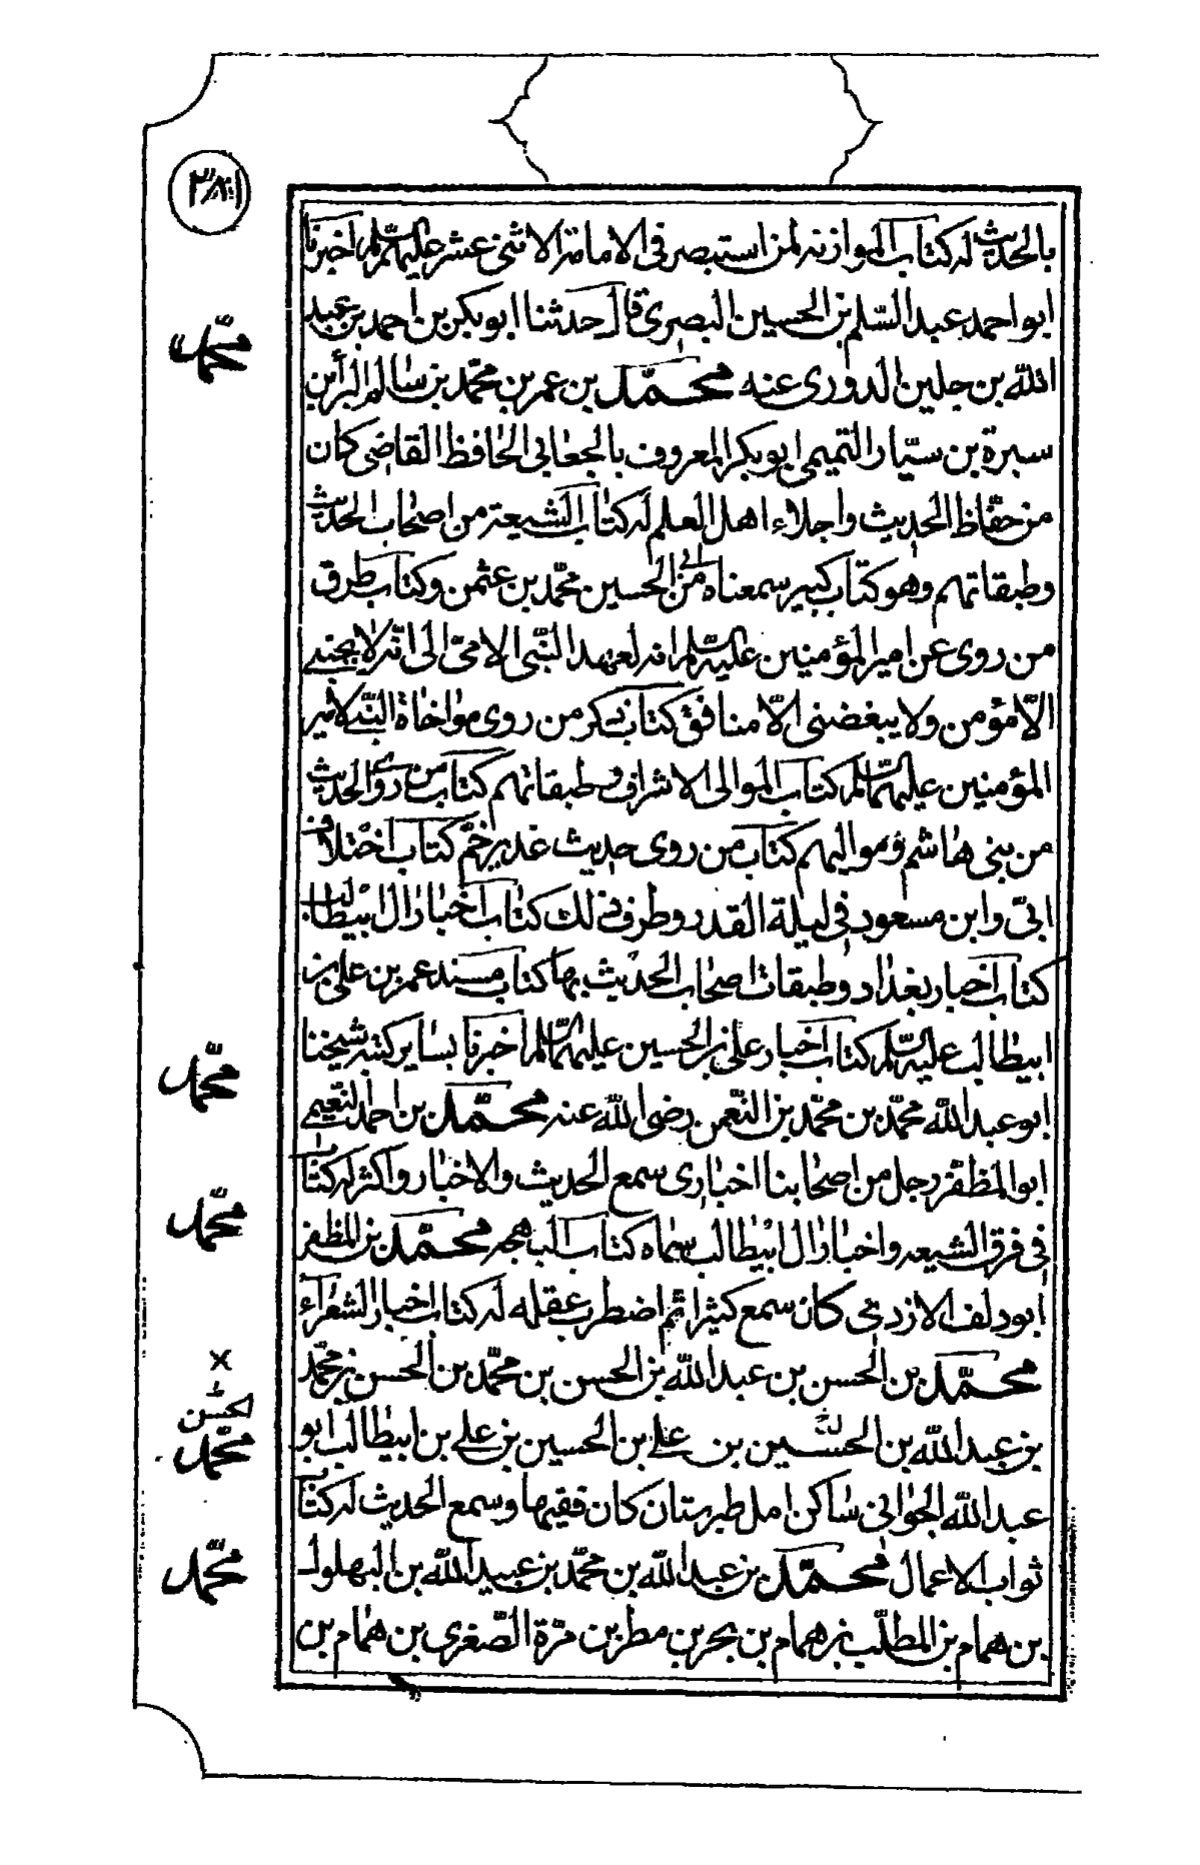 بالحديث له كتاب الموازنه لمن استبصر فى الامامة الاثنى عشر عليهم السّلم اخبرنا
ابو احمد عبد السّلم بن الحسين البصرى قال حدثنا ابو بكر بن احمد بن عبد
اللّه بن جلين الدورى عنه محمّد بن عمر بن محمّد بن سالم البرأبن
سبرة بن سيّار التميمى ابو بكر المعروف بالجعابى الحافظ القاضى كان
من حفّاظ الحديث واجلاء اهل العلم له كتاب الشيعة من اصحاب الحديث
وطبقاتهم وهو كتاب كبير سمعناه من ابى الحسين محمّد بن عثمن وكتاب طرق
من روى عن امير المؤمنين عليه السّلم انه لعهد النّبى الامىّ الى انّه لا يحبنى
الّا مؤمن ولا يبغضنى الّا منافق كتاب ذكر من روى مواخاة النبى لامير
المؤمنين عليهما السّلم كتاب الموالى الاشراف وطبقاتهم كتاب من روى الحديث
من بنى هاشم ومواليهم كتاب من روى حديث غدير خمّ كتاب اختلاف
ابىّ وابن مسعود فى ليلة القدر وطرق ذلك كتاب اخبار ال ابيطالب
كتاب اخبار بغداد وطبقات اصحاب الحديث بها كتاب مسند عمر بن على بن
ابيطالب عليه السّلم كتاب اخبار على بن الحسين عليهما السّلم اخبرنا بساير كتبه شيخنا
ابو عبد اللّه محمّد بن محمّد بن النّعمن رضى اللّه عنه محمّد بن احمد النّعيمى
ابو المظفّر رجل من اصحابنا اخبارى سمع الحديث والاخبار واكثر له كتاب
فى فرق الشيعه واخبار ال ابيطالب سماه كتاب البهجر محمّد بن المظفر
ابو دلف الازدى كان سمع كثيرا ثم اضطرب عقله له كتاب اخبار الشعراء
محمّد بن الحسن بن عبد اللّه بن الحسن بن محمّد بن الحسن بن محمّد
بن عبد اللّه بن الحسين بن على بن الحسين بن على بن ابيطالب ابو
عبد اللّه الجوانى ساكن امل طبرستان كان فقيها وسمع الحديث له كتاب
ثواب الاعمال محمّد بن عبد اللّه بن محمّد بن عبيد اللّه بن البهلول
بن همام بن المطلّب بن همام بن بحر بن مطر بن مرّة الصّغرى بن همام بن
محمّد
محمّد
محمّد
×
الحسن
محمّد
محمّد